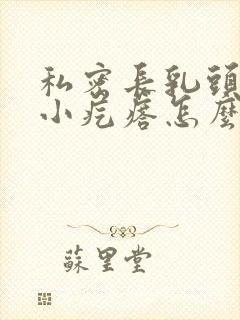 私密長乳頭
小疙瘩怎麼
蘇里堂